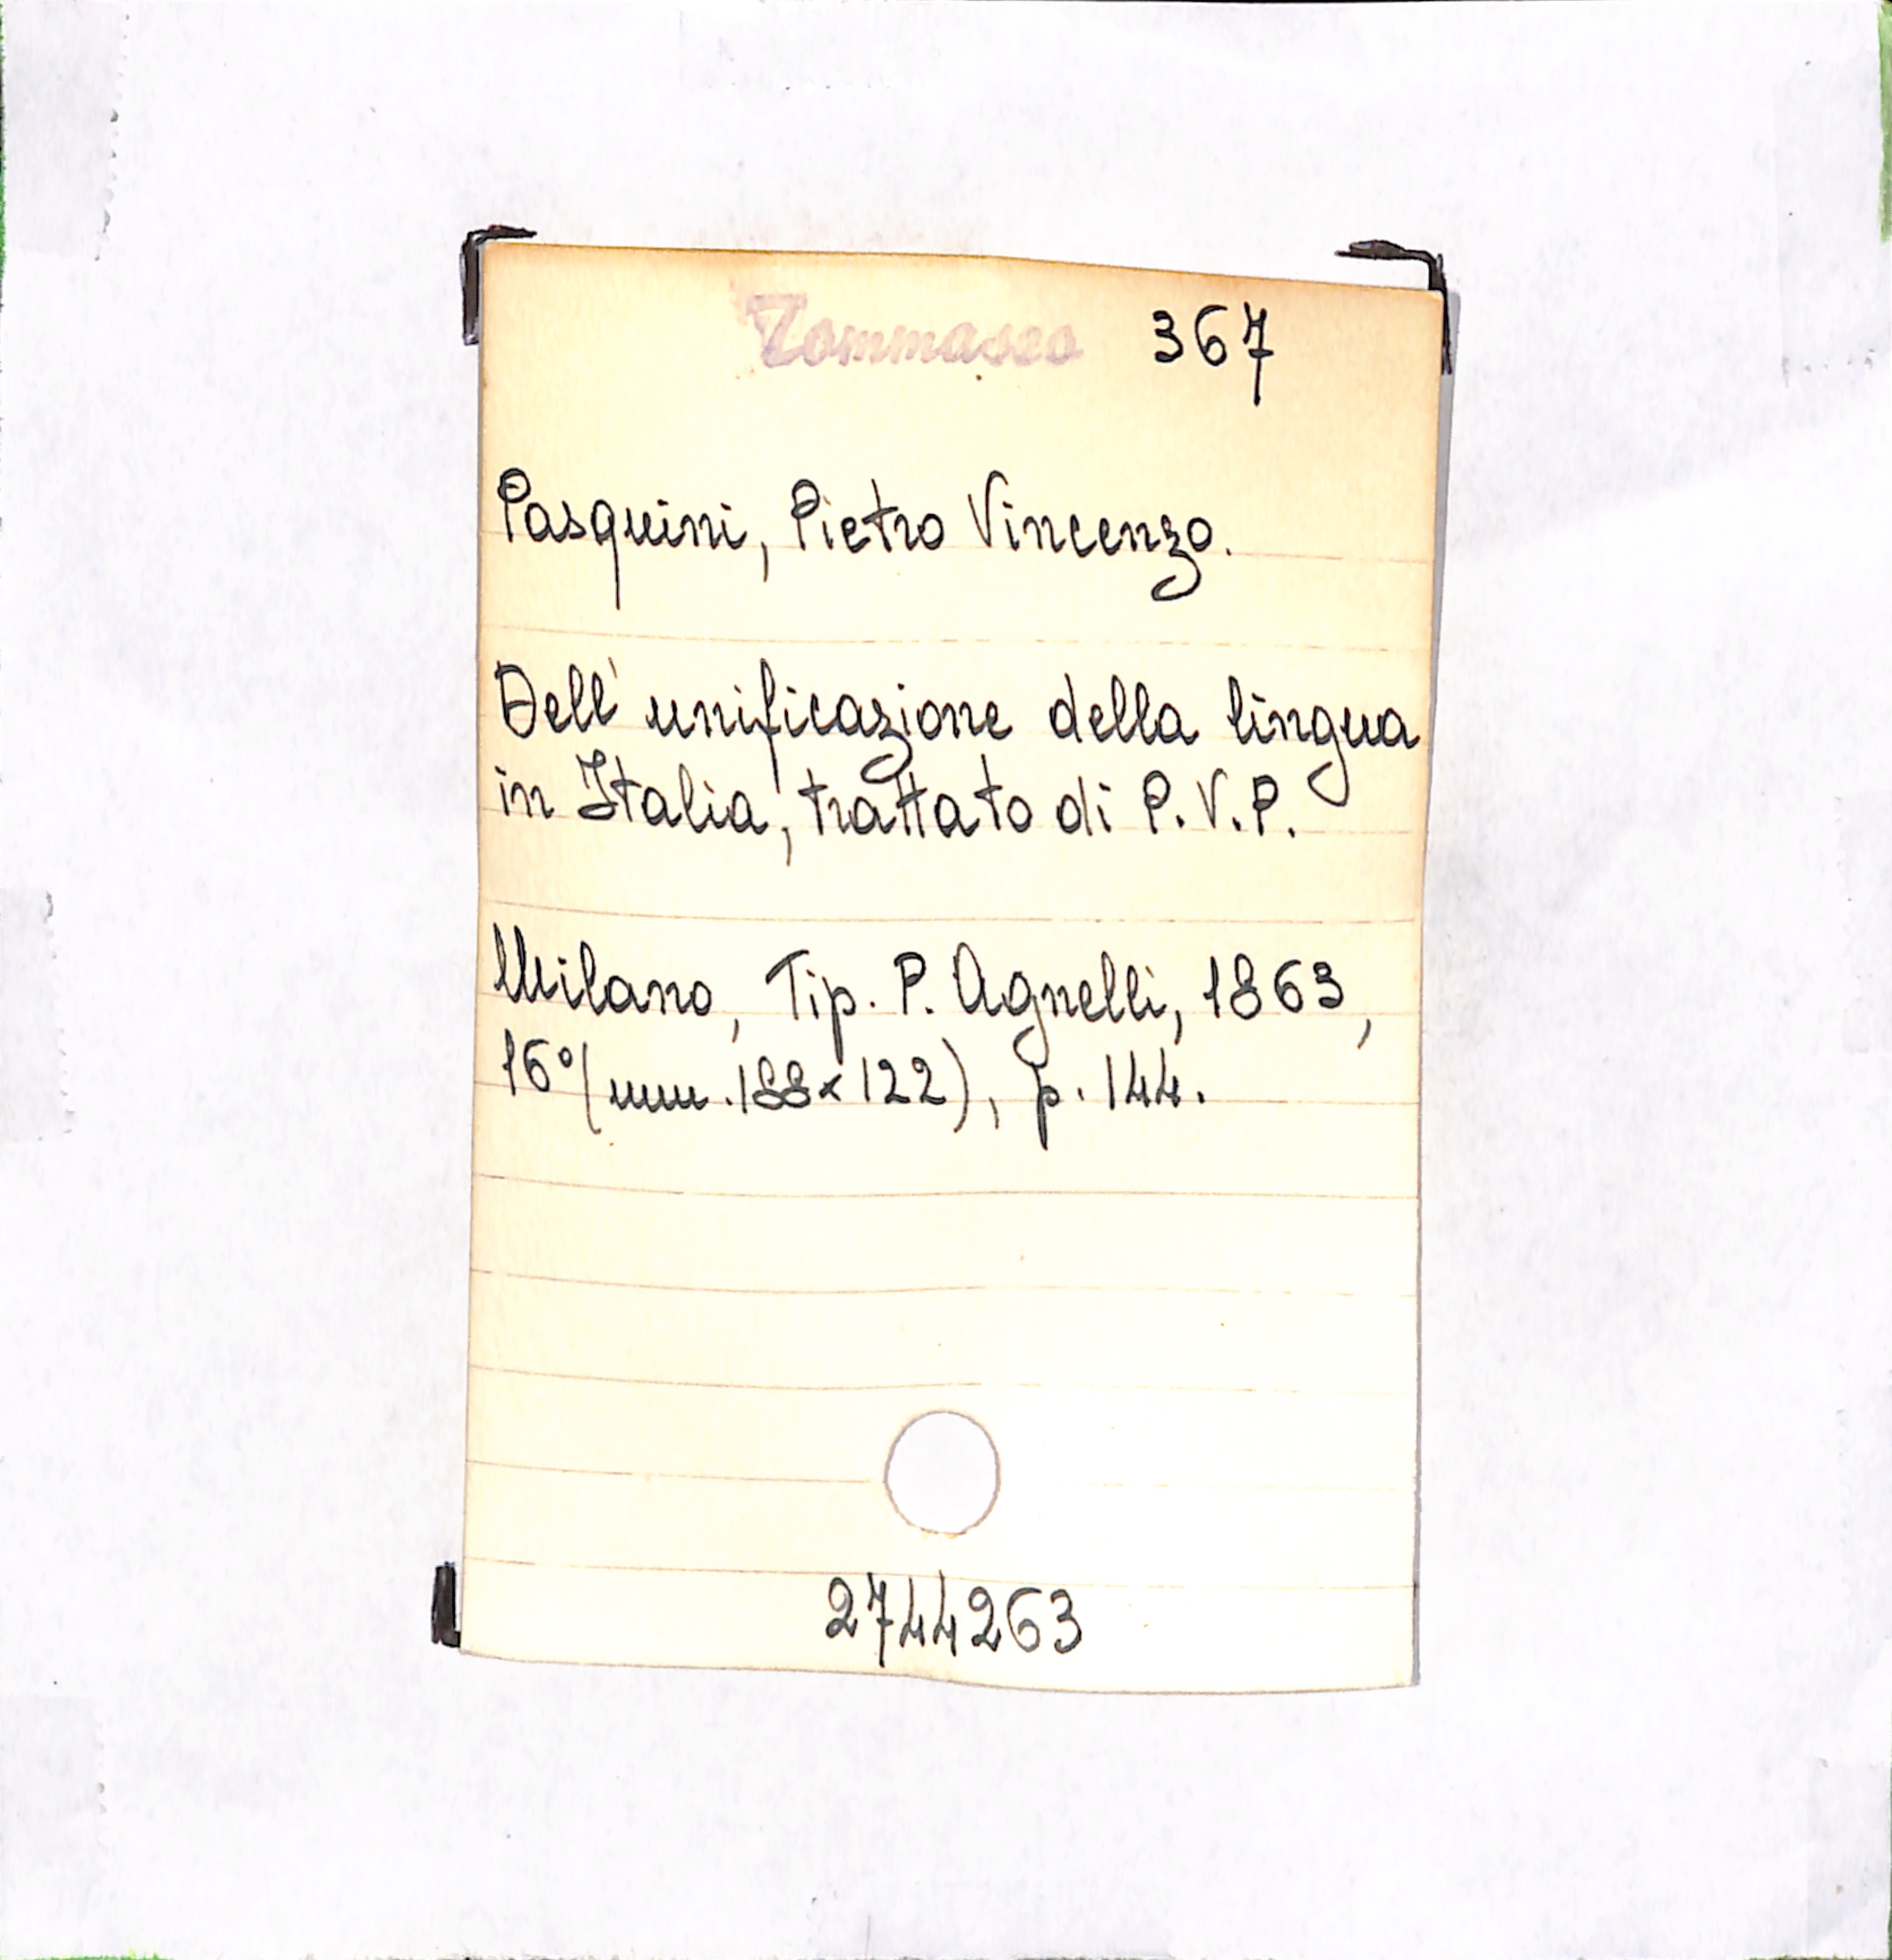 Tommaseo 367
Pasquini, Pietro Vincenzo.
Dell'unificazione della lingua
in Italia, trattato di P.V.P.
Milano, Tip. P. Agnelli, 1863,
16°(mm.188×122), p. 144.
2744263